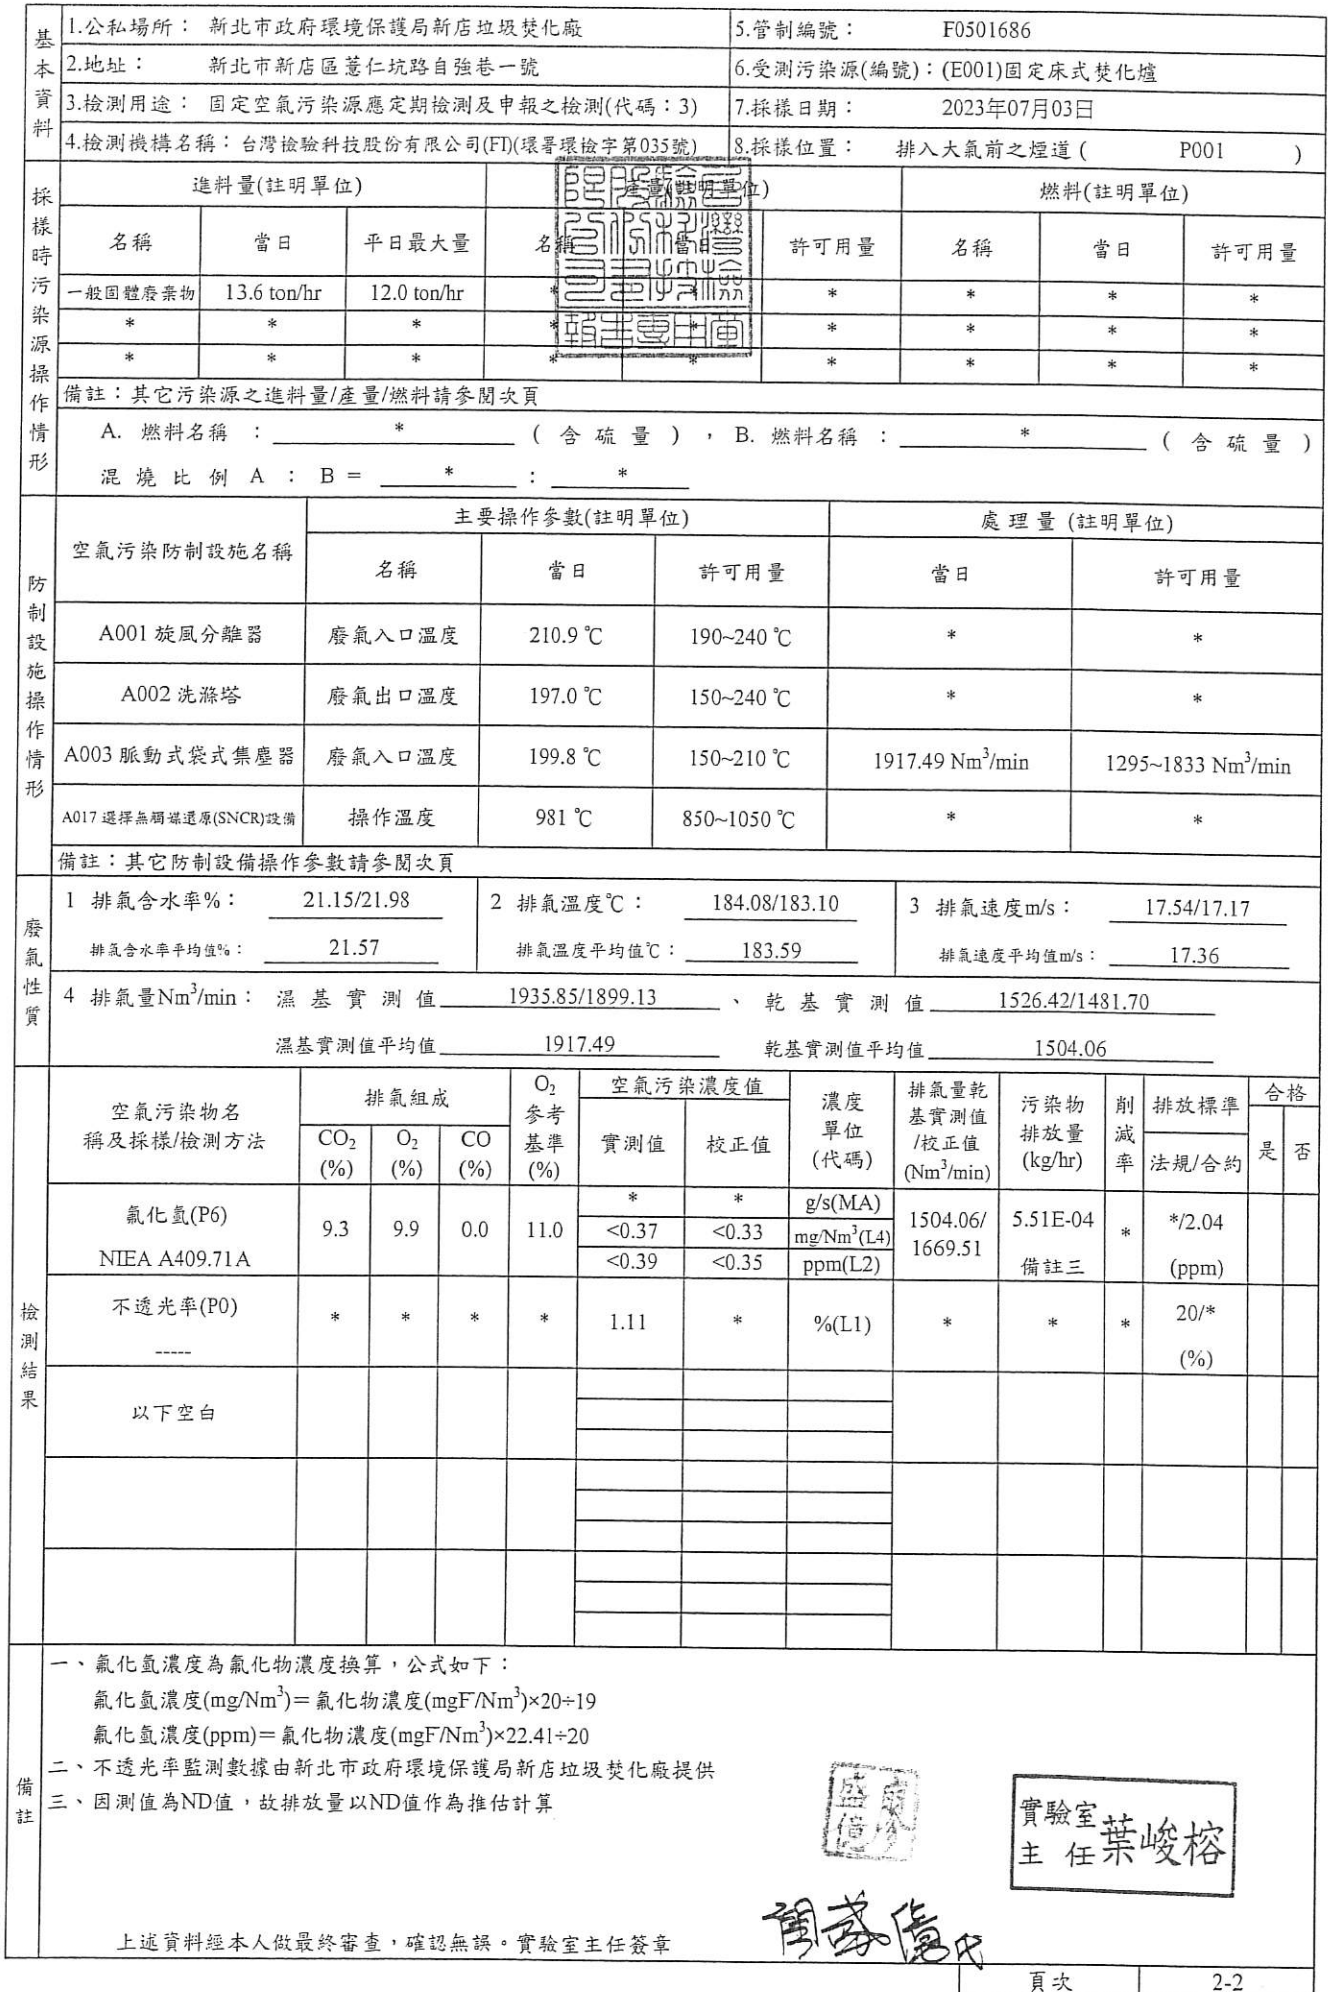 基本資料
1.公私場所： 新北市政府環境保護局新店垃圾焚化廠 5.管制編號： F0501686
2.地址： 新北市新店區薏仁坑路自強巷一號 6.受測污染源(編號)：(E001)固定床式焚化爐
3.檢測用途： 固定空氣污染源應定期檢測及申報之檢測(代碼：3) 7.採樣日期： 2023年07月03日
4.檢測機構名稱：台灣檢驗科技股份有限公司(FT)(環署環檢字第035號) 8.採樣位置： 排入大氣前之煙道 ( P001 )
採樣時污染源操作情形
進料量(註明單位) 產量(註明單位) 燃料(註明單位)
名稱 當日 平日最大量 名稱 當日 許可用量 名稱 當日 許可用量
一般固體廢棄物 13.6 ton/hr 12.0 ton/hr * * * * * *
* * * * * * * * *
* * * * * * * * *
備註：其它污染源之進料量/產量/燃料請參閱次頁
A. 燃料名稱 ： * ( 含 硫 量 ) ， B. 燃料名稱 ： * ( 含 硫 量 )
混 燒 比 例 A ： B = * ： *
防制設施操作情形
空氣污染防制設施名稱 主要操作參數(註明單位) 處理量 (註明單位)
名稱 當日 許可用量 當日 許可用量
A001 旋風分離器 廢氣入口溫度 210.9 ℃ 190~240 ℃ * *
A002 洗滌塔 廢氣出口溫度 197.0 ℃ 150~240 ℃ * *
A003 脈動式袋式集塵器 廢氣入口溫度 199.8 ℃ 150~210 ℃ 1917.49 Nm³/min 1295~1833 Nm³/min
A017 選擇無觸媒還原(SNCR)設備 操作溫度 981 ℃ 850~1050 ℃ * *
備註：其它防制設備操作參數請參閱次頁
廢氣性質
1 排氣含水率%： 21.15/21.98 2 排氣溫度℃： 184.08/183.10 3 排氣速度m/s： 17.54/17.17
排氣含水率平均值%： 21.57 排氣溫度平均值℃： 183.59 排氣速度平均值m/s： 17.36
4 排氣量Nm³/min： 濕 基 實 測 值 1935.85/1899.13 、 乾 基 實 測 值 1526.42/1481.70
濕基實測值平均值 1917.49 乾基實測值平均值 1504.06
檢測結果
空氣污染物名稱及採樣/檢測方法 排氣組成 O₂參考基準(%) 空氣污染濃度值 濃度單位(代碼) 排氣量乾基實測值/校正值(Nm³/min) 污染物排放量(kg/hr) 削減率 排放標準 合格
CO₂(%) O₂(%) CO(%) 實測值 校正值 法規/合約 是 否
氟化氫(P6) NIEA A409.71A 9.3 9.9 0.0 11.0 1504.06/1669.51 5.51E-04 備註三 * */2.04 (ppm)
* * g/s(MA)
<0.37 <0.33 mg/Nm³(L4)
<0.39 <0.35 ppm(L2)
不透光率(P0) ----- * * * * 1.11 * %(L1) * * * 20/* (%)
以下空白
備註
一、氟化氫濃度為氟化物濃度換算，公式如下：
氟化氫濃度(mg/Nm³)＝氟化物濃度(mgF⁻/Nm³)×20÷19
氟化氫濃度(ppm)＝氟化物濃度(mgF⁻/Nm³)×22.41÷20
二、不透光率監測數據由新北市政府環境保護局新店垃圾焚化廠提供
三、因測值為ND值，故排放量以ND值作為推估計算
實驗室主 任葉峻榕
上述資料經本人做最終審查，確認無誤。實驗室主任簽章
頁次 2-2